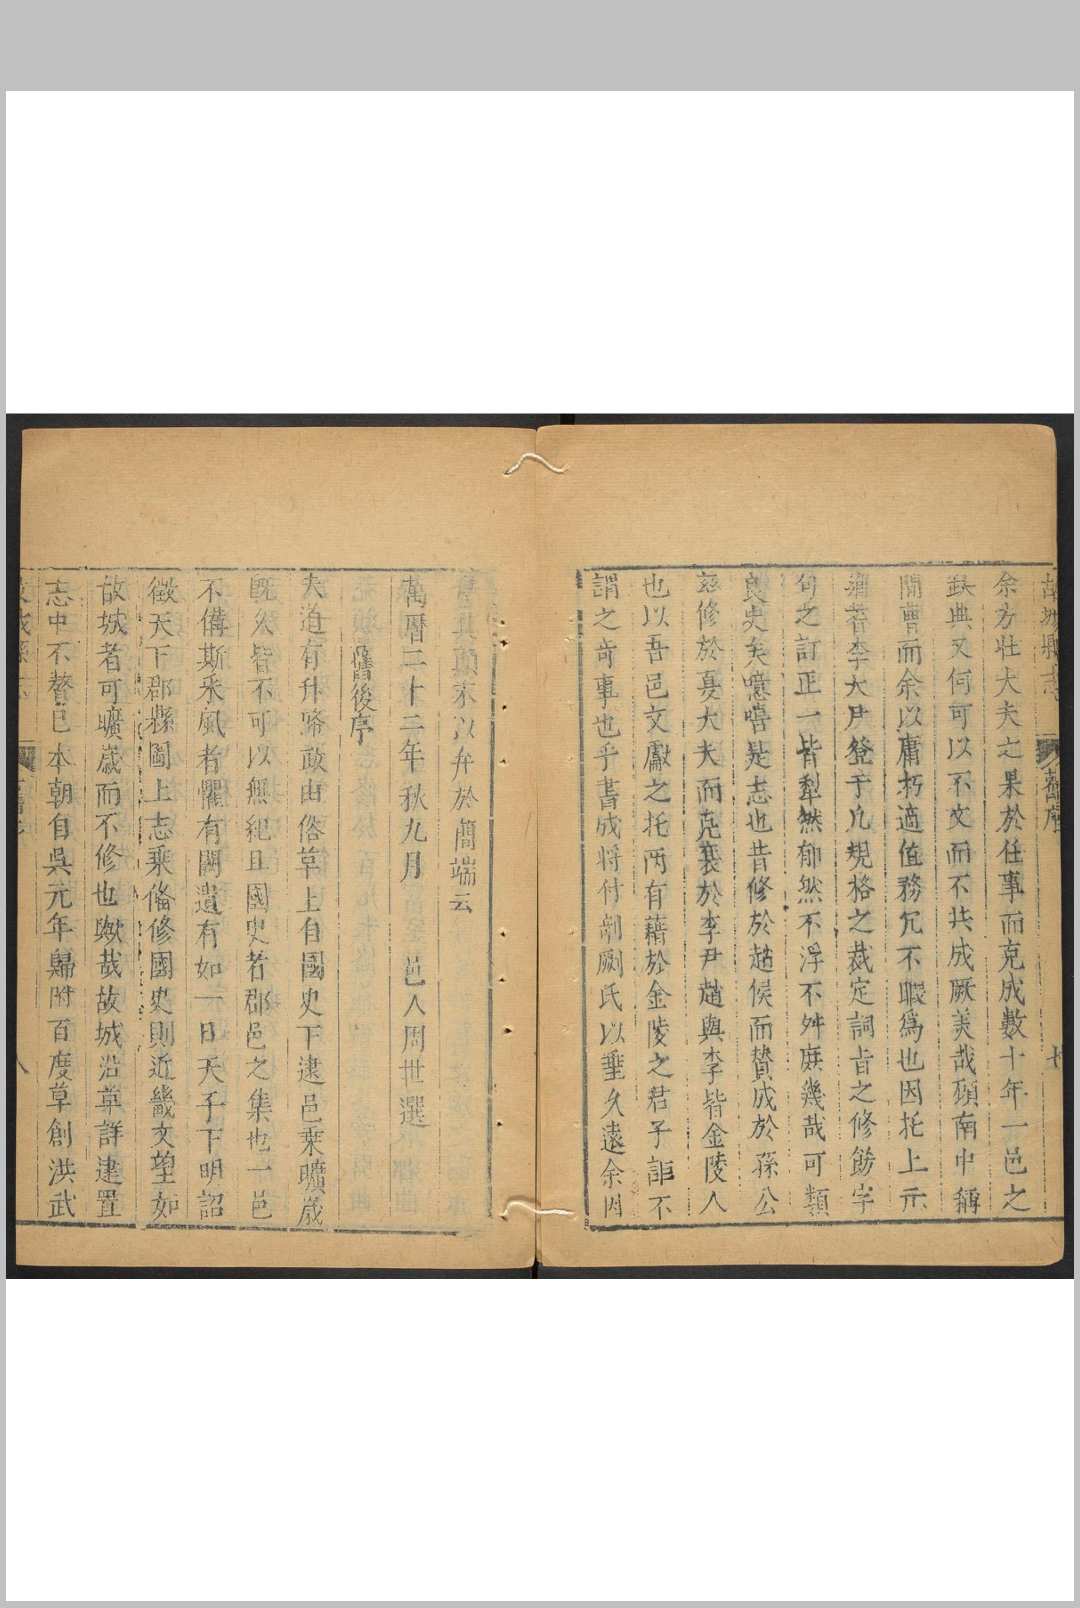 故城縣志 舊序 七
余方壯大夫之果於任事而克成數十年一邑之
缺典又何可以不文而不共成厥美哉碩南中稱
閒曹而余以庸朽適值務冗不暇為也因托上元
李大尹登于凡規格之裁定詞旨之修飭字
句之訂正一皆犁然郁然不浮不舛庶幾哉可類
良史矣噫嘻是志也昔修於趙侯而贊成於孫公
茲修於夏大夫而克襄於李尹趙與李皆金陵人
也以吾邑文獻之托而有藉於金陵之君子詎不
謂之奇事也乎書成將付剞劂氏以垂久遠余因
書其顛末以弁於簡端云
萬曆二十二年秋九月 邑人周世選
舊後序
夫道有升降政由俗革上自國史下逮邑乘曠歲
既久皆不可以無紀且國史者郡邑之集也一邑
不備斯采風者懼有闕遺有如一日天子下明詔
徵天下郡縣圖上志乘俻修國史則近畿文望如
故城者可曠歲而不修也歟哉故城沿革詳建置
志中不贅已本朝自吳元年歸附百度草創洪武
八